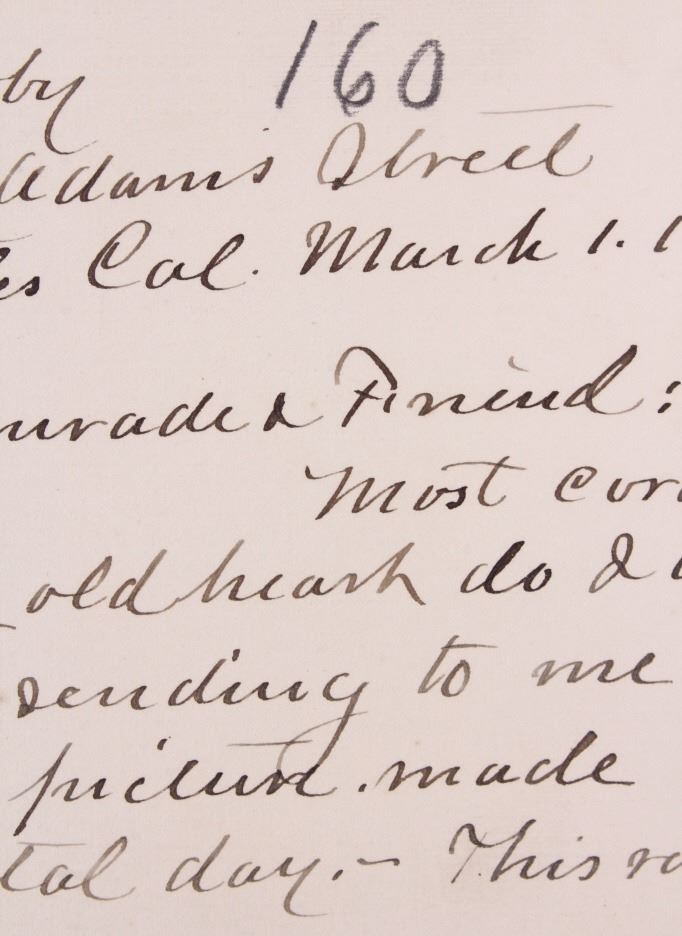 160
by
Adams Street
es Cal. March 1. 1
mrade & Friend:
Most cor
old heart do I
sending to me
picture made
tal day. — This